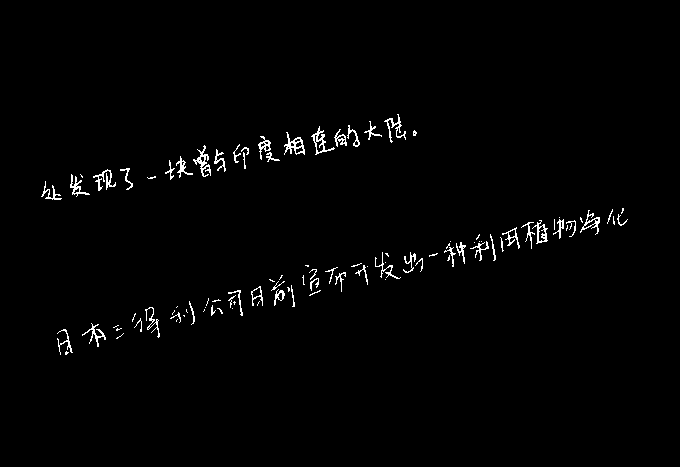 处发现了一块曾与印度相连的大陆。
日本三得利公司日前宣布开发出一种利用植物净化